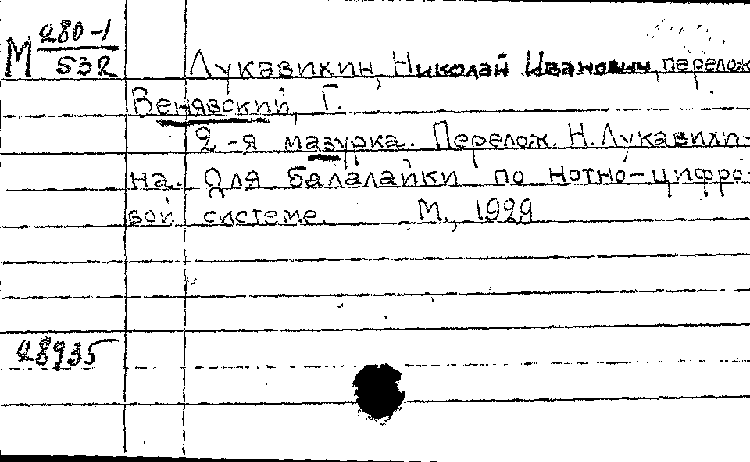 М 280-1
532
Лукавихин, Николай Иванович, перелож
Венявский, Г.
2-я мазурка. Перелож. Н. Лукавихи-
на. Для балалайки по нотно-цифро-
вой системе. М., 1929
28935